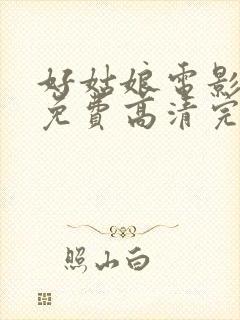 好姑娘电影
免费高清完
照山白